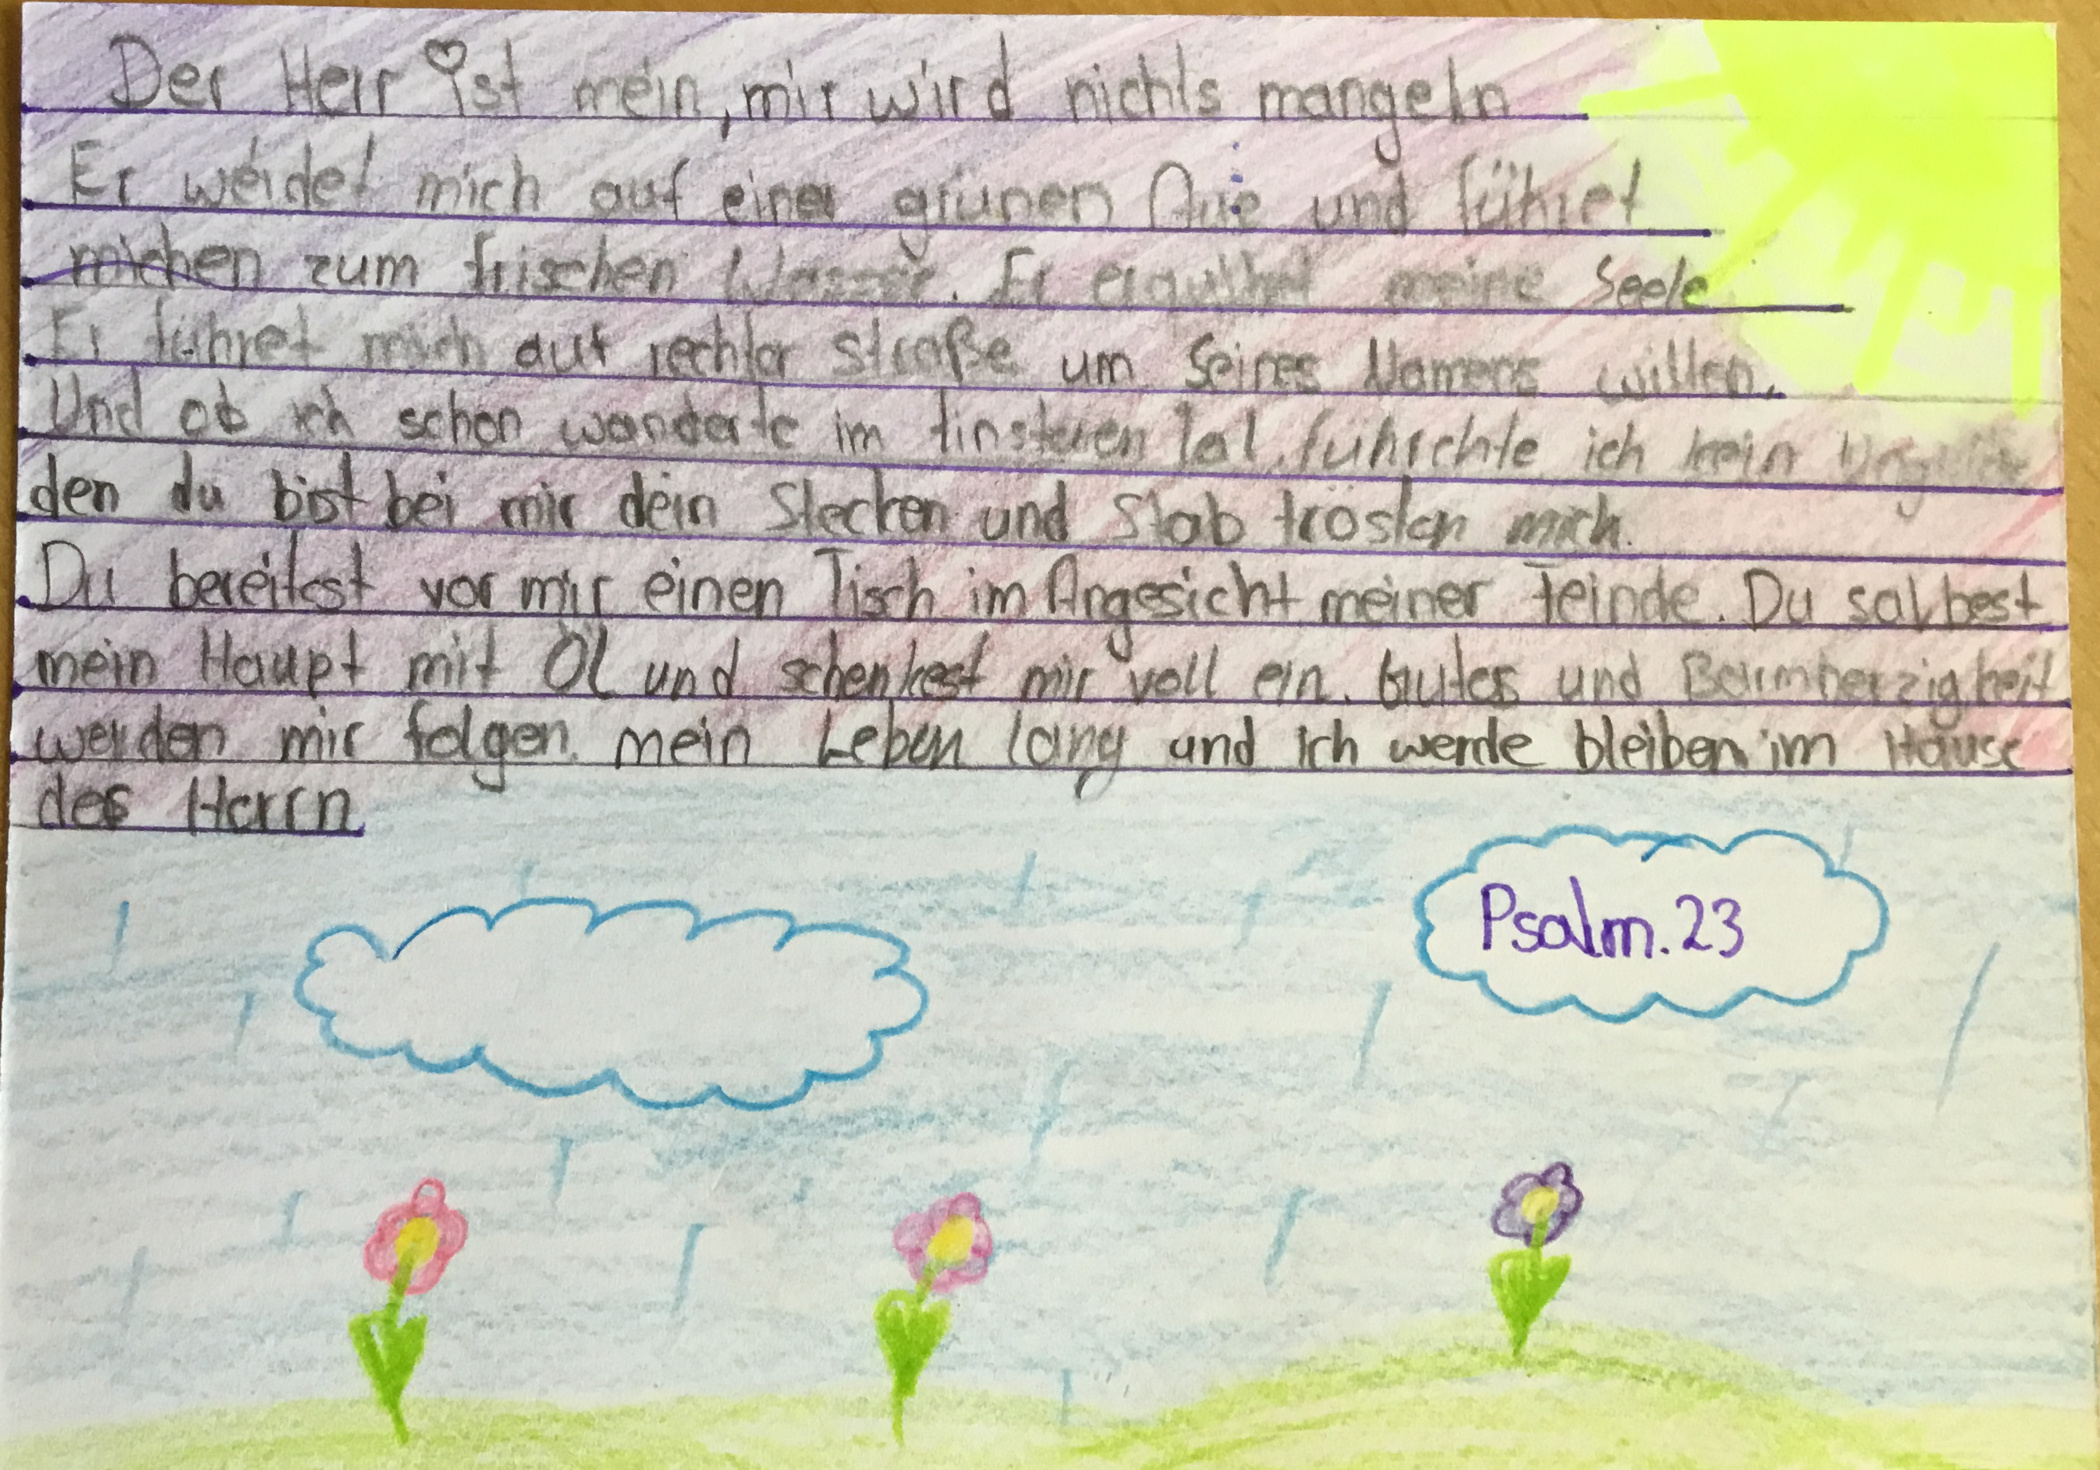 Der Herr ist mein, mir wird nichts mangeln
Er weidet mich auf einer grünen Aue und führet
michen zum frischen Wasser. Er erquikket meine Seele
Er führet mich auf rechter Straße um Seines Namens willen.
Und ob ich schon wanderte im finsteren Tal, führchte ich kein
den du bist bei mir dein Stecken und Stab trösten mich.
Du bereitest vor mir einen Tisch im Angesicht meiner Feinde. Du salbest
mein Haupt mit Öl und schenkest mir voll ein. Gutes und Barmherzigkeit
werden mir folgen. mein Leben lang und ich werde bleiben im Hause
des Herrn
Psalm.23